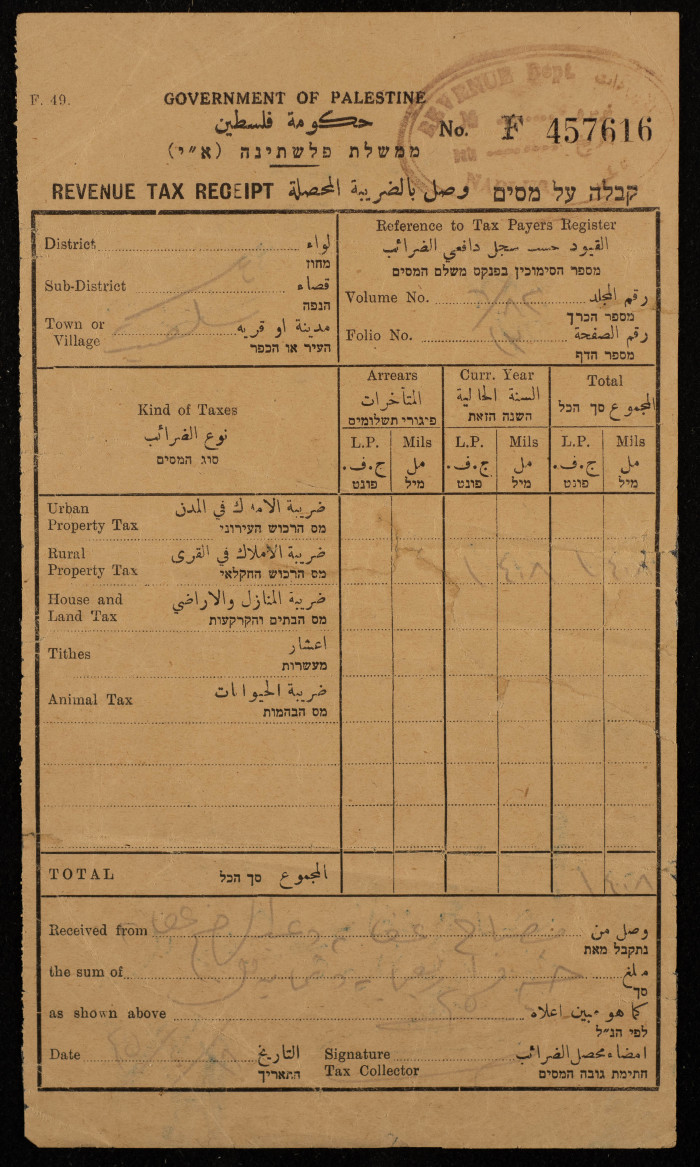 F. 49.
GOVERNMENT OF PALESTINE
حكومة فلسطين
ממשלת פלשתינה (א״י)
REVENUE Dept
No. F 457616
REVENUE TAX RECEIPT وصل بالضريبة المحصلة קבלה על מסים
District لواء
מחוז
Sub-District قضاء
הנפה
Town or Village مدينة او قريه
העיר או הכפר
Reference to Tax Payers Register
القيود حسب سجل دافعي الضرائب
מספר הסימוכין בפנקס משלם המסים
Volume No. رقم المجلد
מספר הכרך
Folio No. رقم الصفحة
מספר הדף
Kind of Taxes
نوع الضرائب
סוג המסים
Arrears
المتأخرات
פיגורי תשלומים
Curr. Year
السنة الحالية
השנה הזאת
Total
المجموع סך הכל
L.P. Mils L.P. Mils L.P. Mils
ج.ف. مل ج.ف. مل ج.ف. مل
פונט מיל פונט מיל פונט מיל
Urban Property Tax ضريبة الاملاك في المدن
מס הרכוש העירוני
Rural Property Tax ضريبة الاملاك في القرى
מס הרכוש החקלאי
House and Land Tax ضريبة المنازل والاراضي
מס הבתים והקרקעות
Tithes اعشار
מעשרות
Animal Tax ضريبة الحيوانات
מס הבהמות
TOTAL المجموع סך הכל
Received from وصل من
נתקבל מאת
the sum of مبلغ
סך
as shown above كما هو مبين اعلاه
לפי הנ״ל
Date التاريخ
התאריך
Signature Tax Collector امضاء محصل الضرائب
חתימת גובה המסים